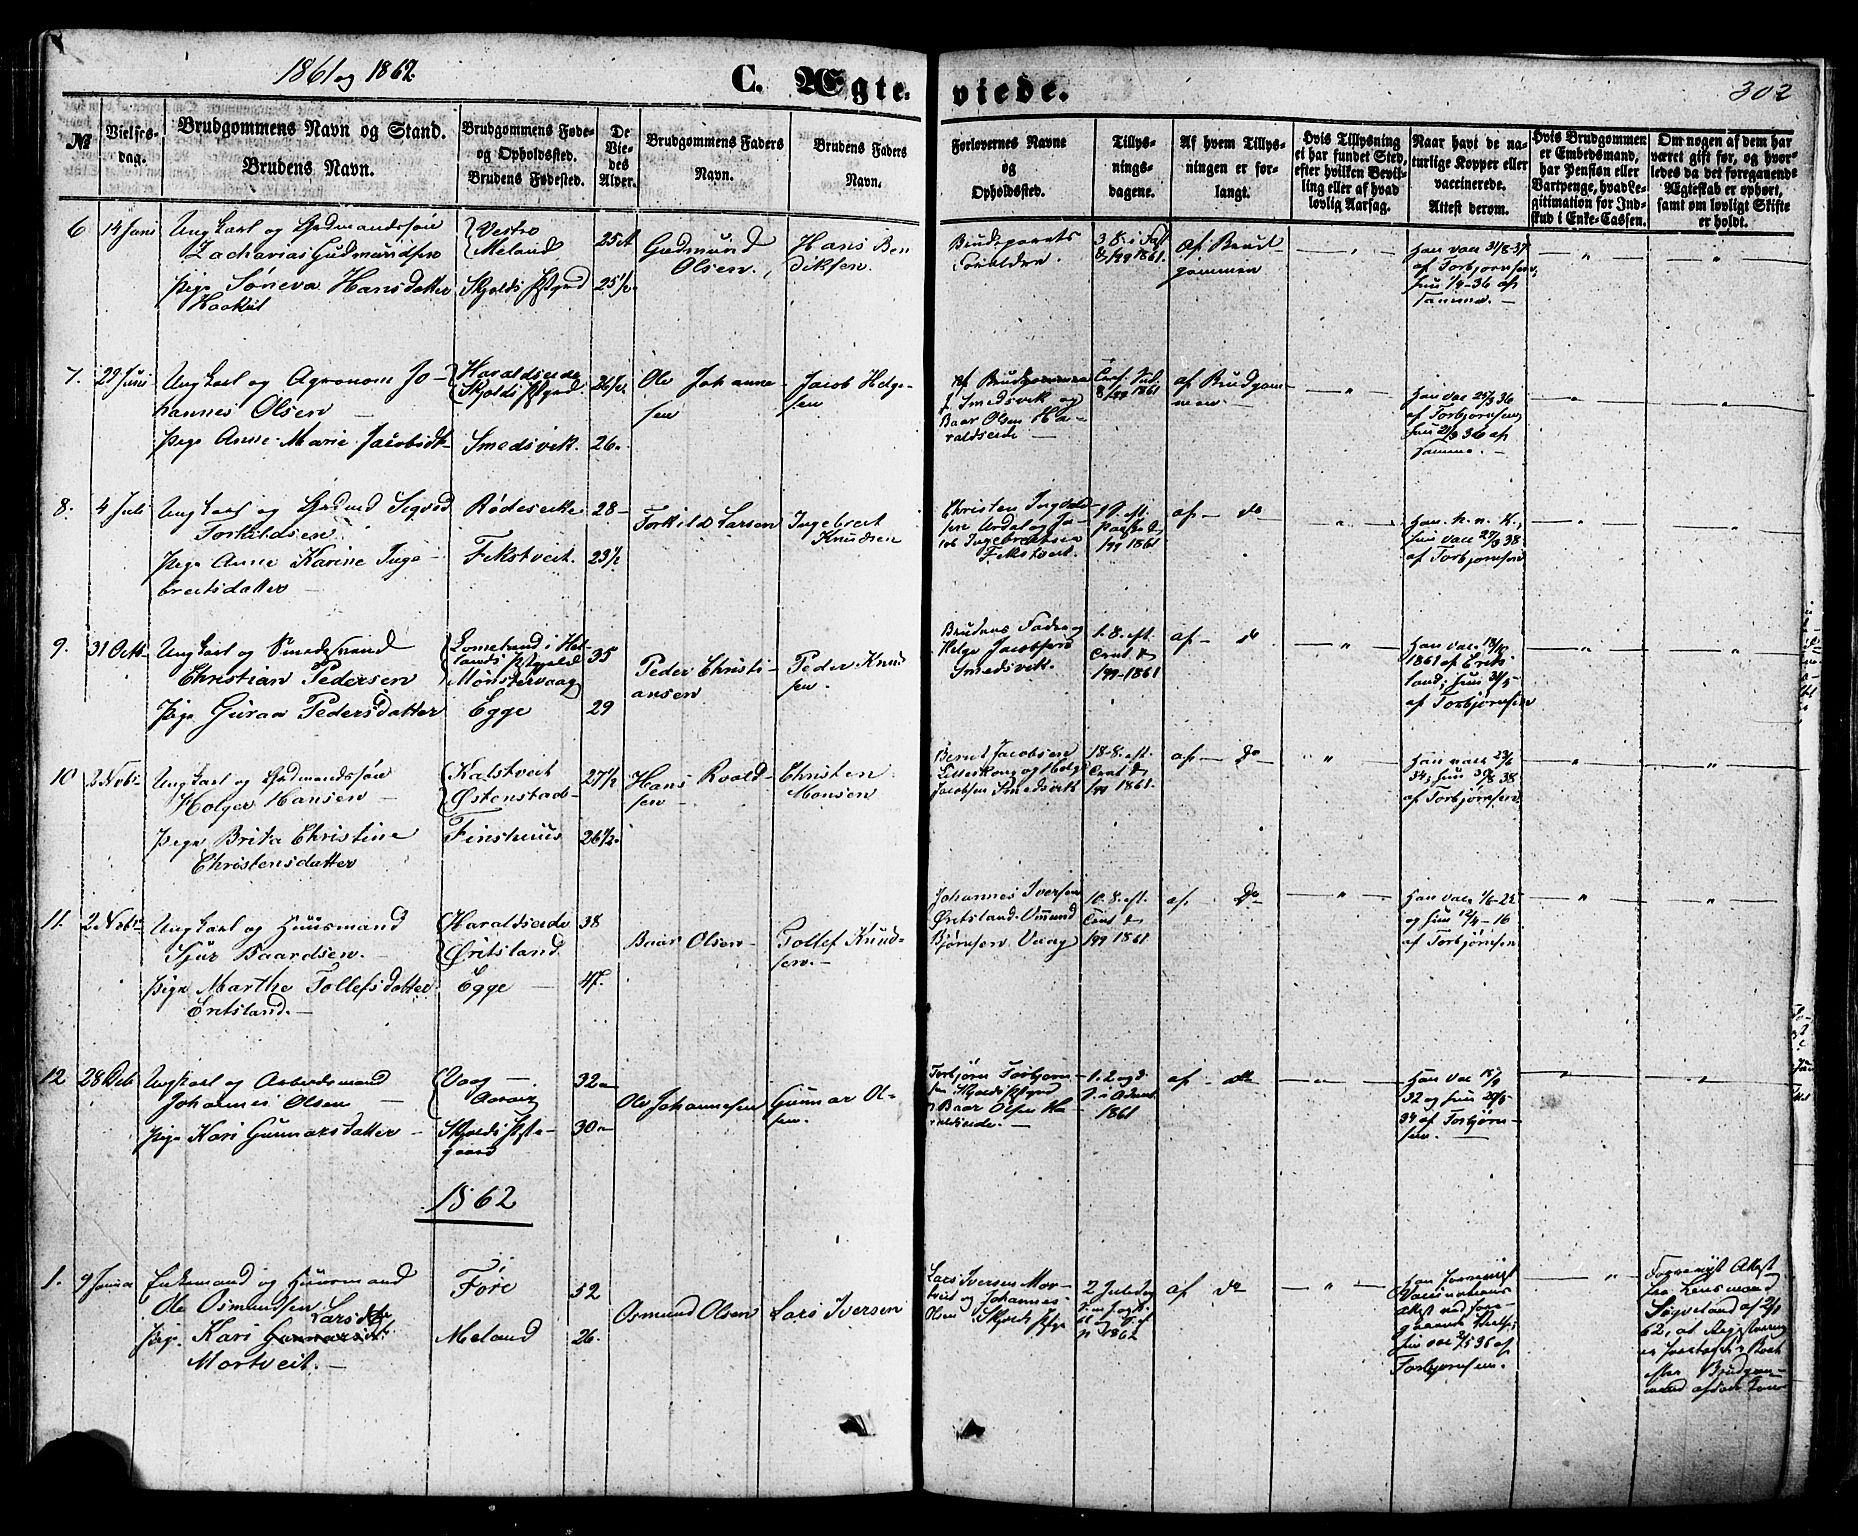 1861 og 1862.
C. Ægte-
viede.
302
№
Vielses-
dag.
Brudgommens Navn og Stand.
Brudens Navn.
Brudgommens Føde-
og Opholdssted.
Brudens Fødested.
De
Vie-
des
Alder.
Brudgommens Faders
Navn.
Brudens Faders
Navn.
Forlovernes Navne
og
Opholdssted.
Tillys-
nings-
dagene.
Af hvem Tillys-
ningen er for-
langt.
Hvis Tillysning
ei har fundet Sted,
efter hvilken Bevil-
ling eller af hvad
lovlig Aarsag.
Naar havt de na-
turlige Kopper eller
vaccinerede.
Attest derom.
Hvis Brudgommen
er Embedsmand,
har Pension eller
Vartpenge, hvad Le-
gitimation for Ind-
skud i Enke-Cassen.
Om nogen af dem har
været gift før, og hvor-
ledes da det foregaaende
Ægteskab er ophørt,
samt om lovligt Skifte
er holdt.
6
14 Juni
Ungkarl og Gdmandssøn
Zacharias Gudmundsen
Pige Søneva Hansdatter
Haaket
Vestre
Meland
Skjolds Pstgjd
25
25½
Gudmund
Olsen.
Hans Ben
diksen.
Brudeparrets
Forældre
1861.
af Brud
gommen
Han vac 31/8-37
af Torbjørnsen,
hun 1/9-36 af
samme.
7.
29 Juni
Ungkarl og Agronom Jo-
hannes Olsen
Pige Anne Marie Jacobsdt
Haraldseide
Skjolds Pstgjd
Smedsvik.
26½
26.
Ole Johanne-
sen
Jacob Helge-
sen
Af Brudgommen
J. Smedsvik og
Baar Olsen Ha-
raldseide
1861
af Brudgom-
men
Han vac 36
af Torbjørnsen,
hun 36 af
samme.
8.
4 Juli
Ungkarl og Gdmd Sigvod
Torkildsen
Pige Anne Karine Inge-
bretsdatter
Rødeseike
Fekstveit.
28
23½
Torkild Larsen
Ingebret
Knudsen
Christen Ingvald
sen Ardal og Ja-
cob Ingebretsen
Fekstveit.
1861
af do
Han h. n. K.,
hun vac 38
af Torbjørnsen
9.
31 Octb
Ungkarl og
Christian Pedersen
Pige Guraa Pedersdatter
Mønstervaag
Egge
35
29
Peder Christi-
ansen
Peder Knud
sen.
Brudens Fader og
Helge Jacobsen
Smedsvik.
1. S. eft.
1861
af do
Han vac
1861 af Erits-
land; hun
af Torbjørnsen
10
2 Novb
Ungkarl og Gdmandssøn
Holger Hansen
Pige Brita Christine
Christensdatter
Kalstveit
Østenstad
Finshuus
27½
26½
Hans Roald-
sen
Christen
Monsen
Bernt Jacobsen
Litteskong og Helge
Jacobsen Smedsvik
18. S. eft.
1861.
af Do
Han vac
34, hun 38
af Torbjørnsen
11.
2 Novb
Ungkarl og Huusmand
Sjur Baardsen.
Pige Marthe Tollefsdatter
Eritsland.
Haraldseide
Øritsland
Egge
38
47.
Baar Olsen
Tollef Knud-
sen.
Johannes Iversen
Øritsland. Omund
Bjørnsen Vaag
10. S. eft.
1861
af. Do
Han vac
og hun 16
af Torbjørnsen
12
28 Deb
Ungkarl og Arbeidsmand
Johannes Olsen
Pige Kari Gunnarsdatter
Vaag
Skjolds Pste-
gaard
32
30
Ole Johannesen
Gunnar Ol-
sen.
Torbjørn Torbjørn-
sen Skjolds Pstgrd
Baar Olsen Ha
raldseide.
1. 2 og 3
S. i Advent
1861
af do
Han vac
32 og hun
34 af Torbjørn-
sen.
1862
1.
9 Janua
Enkemand og Huusmand
Ole Osmundsen
Larsdtr
Pige Kari Gunnarsdt.
Mortveit.
Føre
Meland
52
26.
Osmund Olsen
Lars Iversen
Lars Iversen Mor-
tveit og Johannes
Olsen
2 Juledag
1862
af do
Han foreviist
Vaccinations
Attest ved fore-
gaaende Vielse;
hun vac 36 af
Torbjørnsen.
Foreviist Attest
fra Lensmand
62, at Registrering
er foretaget i Boet
efter Brudgom-